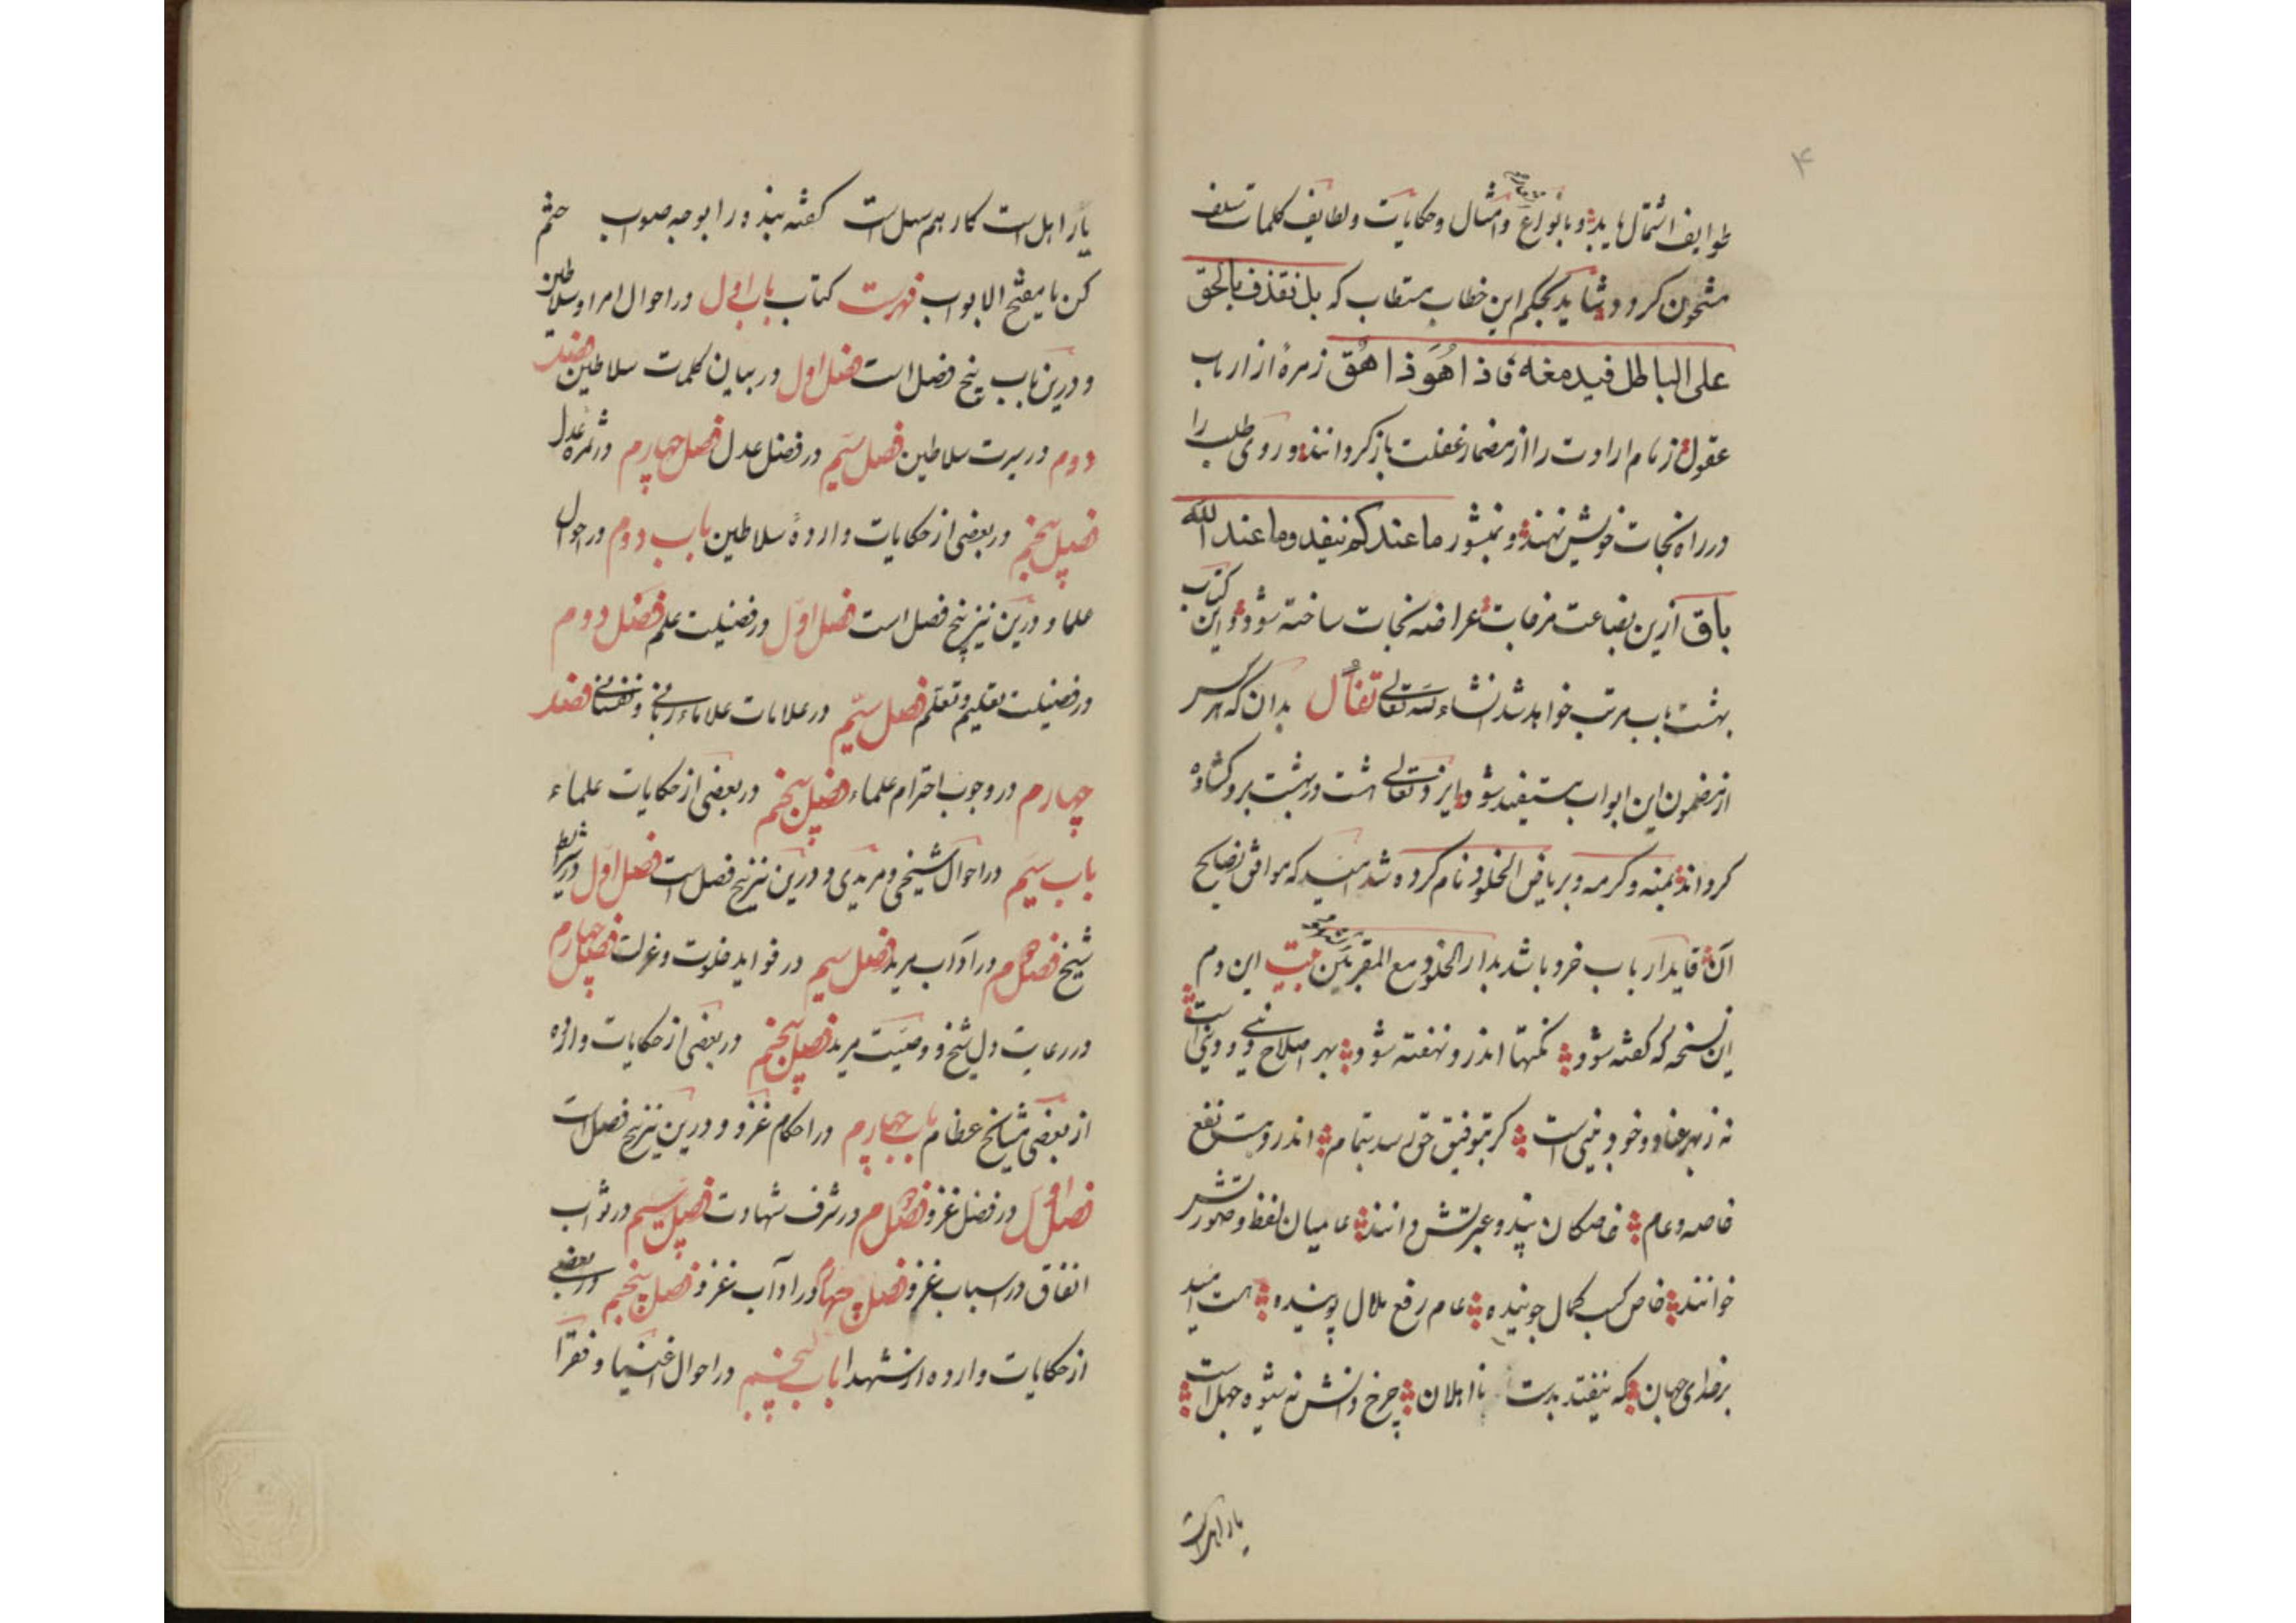 ۴
طوایف اشتمال یابد و بانواع و امثال و حکایات و لطایف کلمات سلف
مشحون کردد و شاید بحکم این خطاب مستطاب که بل نقذف بالحق
علی الباطل فیدمغه فاذا هُوَ ذا هُق زمرۀ از ارباب
عقول زمام ارادت را از مضمار غفلت باز کردانند و روی طلب را
در راه نجات خویش نهند و بمنشور ما عندکم ینفد وما عند الله
باق ازین بضاعت مزجات عراضه نجات ساخته شود و این کتاب
بهشت باب مرتب خواهد شد انشاء الله تعالی تفأل بدان که هر کس
از مضمون این ابواب مستفید شود ایزد تعالی هشت در بهشت برو کشاده
کرداند بمنه و کرمه و بریاض الخلود نام کرده شد امید که موافق نصایح
آن قاید ارباب خرد باشد بدار الخلود مع المقربین بیت این دم
این نسخه که کفته شود نکتها اندرو نهفته شود بهر اصلاح دینی و دنیی است
نه ز بهر عناد و خود بینی است کر بتوفیق حق رسد بتمام اندرو هست نفع
خاصه و عام خاصکان پند و عبرتش دانند عامیان لفظ و صورتش
خوانند خاص کسب کمال جوینده عام رفع ملال پوینده هست امید
بر خدای جهان که نیفتد بدست نااهلان چرخ دانش نه شیوه جهل است
یار اهلست
یار اهل است کار هم سهل است کفته بپذیر را بوجه صواب ختم
کن یا مفتح الابواب فهرست کتاب باب اول در احوال امرا و سلاطین
و درین باب پنج فصل است فصل اول در بیان کلمات سلاطین فصل
دوم در سیرت سلاطین فصل سیم در فضل عدل فصل چهارم در ثمره عدل
فصل پنجم در بعضی از حکایات واردۀ سلاطین باب دوم در احوال
علما و درین نیز پنج فصل است فصل اول در فضیلت علم فصل دوم
در فضیلت تعلیم و تعلم فصل سیم در علامات علماء ربانی و نفسانی فصل
چهارم در وجوب احترام علماء فصل پنجم در بعضی از حکایات علماء
باب سیم در احوال شیخی و مریدی و درین نیز پنج فصل است فصل اول در شرایط
شیخ فصل دوم در آداب مرید فصل سیم در فواید خلوت و عزلت فصل چهارم
در رعایت دل شیخ و وصیت مرید فصل پنجم در بعضی از حکایات وارده
از بعضی مشایخ عظام باب چهارم در احکام غزو و درین نیز پنج فصل است
فصل اول در فضل غزو فصل دوم در شرف شهادت فصل سیم در ثواب
انفاق در اسباب غزو فصل چهارم در آداب غزو فصل پنجم در بعضی
از حکایات وارده از شهدا باب پنجم در احوال اغنیا و فقرا